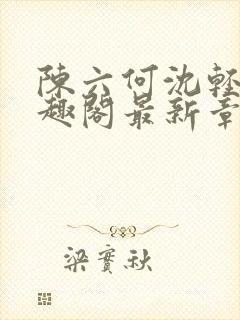 陳六何沈輕
趣閣最新章
梁實秋